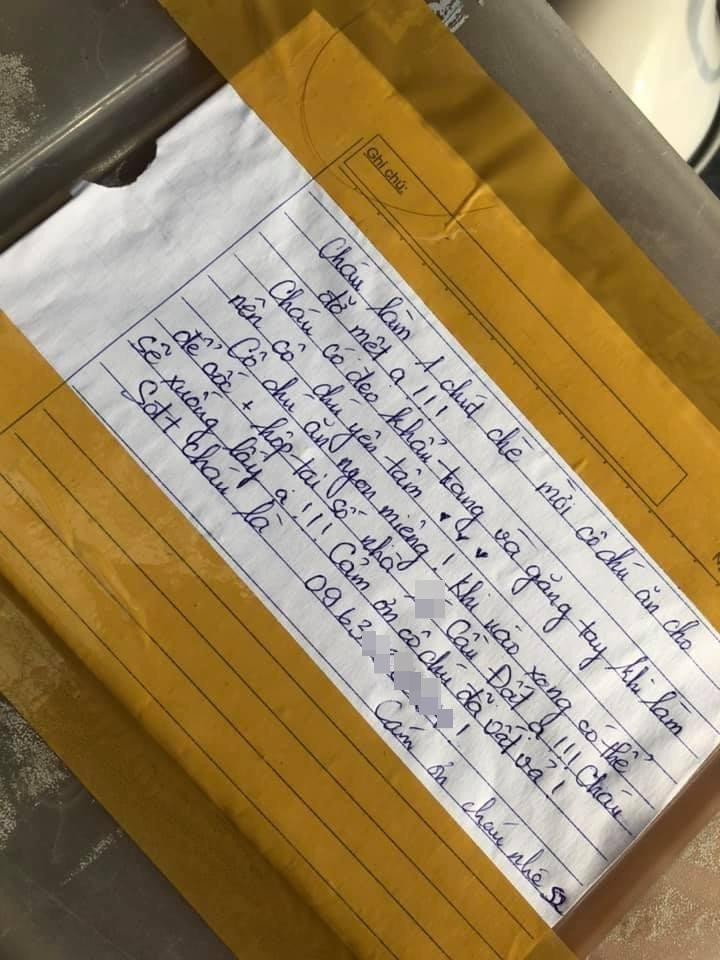 Ghi chú:
Cháu làm 1 chút chè mời cô chú ăn cho
đỡ mệt ạ!!!
Cháu có đeo khẩu trang và găng tay khi làm
nên cô chú yên tâm ♥ ♥ ♥
Cô chú ăn ngon miệng! Khi nào xong có thể
để cốc + hộp tại số nhà Cầu Đất ạ!!! Cháu
sẽ xuống lấy ạ!!! Cảm ơn cô chú đã vất vả!
Sđt cháu là 0963 !
Cảm ơn cháu nhé